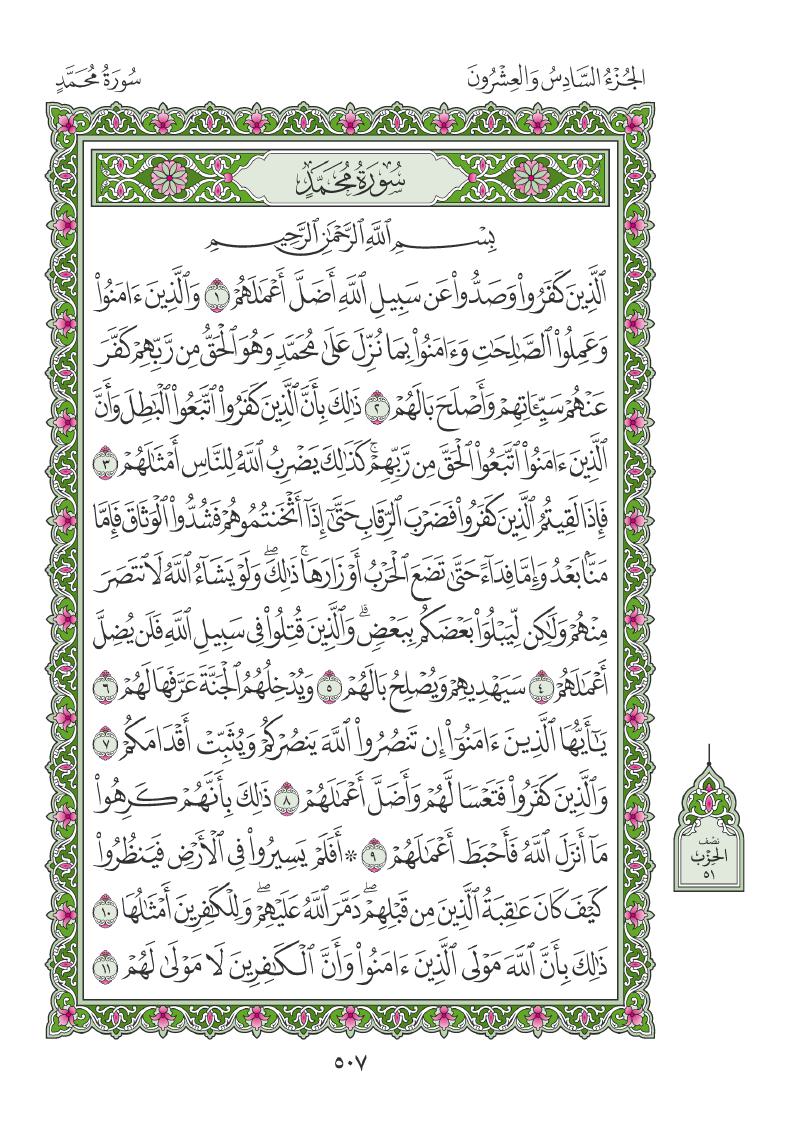 الجُزْءُ السَّادِسُ وَالعِشْرُونَ
سُورَةُ مُحَمَّدٍ
سُورَةُ مُحَمَّدٍ
بِسْمِ ٱللَّهِ ٱلرَّحْمَٰنِ ٱلرَّحِيمِ
ٱلَّذِينَ كَفَرُواْ وَصَدُّواْ عَن سَبِيلِ ٱللَّهِ أَضَلَّ أَعْمَٰلَهُمْ ١ وَٱلَّذِينَ ءَامَنُواْ
وَعَمِلُواْ ٱلصَّٰلِحَٰتِ وَءَامَنُواْ بِمَا نُزِّلَ عَلَىٰ مُحَمَّدٍ وَهُوَ ٱلْحَقُّ مِن رَّبِّهِمْ كَفَّرَ
عَنْهُمْ سَيِّـَٔاتِهِمْ وَأَصْلَحَ بَالَهُمْ ٢ ذَٰلِكَ بِأَنَّ ٱلَّذِينَ كَفَرُواْ ٱتَّبَعُواْ ٱلْبَٰطِلَ وَأَنَّ
ٱلَّذِينَ ءَامَنُواْ ٱتَّبَعُواْ ٱلْحَقَّ مِن رَّبِّهِمْۚ كَذَٰلِكَ يَضْرِبُ ٱللَّهُ لِلنَّاسِ أَمْثَٰلَهُمْ ٣
فَإِذَا لَقِيتُمُ ٱلَّذِينَ كَفَرُواْ فَضَرْبَ ٱلرِّقَابِ حَتَّىٰٓ إِذَآ أَثْخَنتُمُوهُمْ فَشُدُّواْ ٱلْوَثَاقَ فَإِمَّا
مَنَّۢا بَعْدُ وَإِمَّا فِدَآءً حَتَّىٰ تَضَعَ ٱلْحَرْبُ أَوْزَارَهَاۚ ذَٰلِكَۖ وَلَوْ يَشَآءُ ٱللَّهُ لَٱنتَصَرَ
مِنْهُمْ وَلَٰكِن لِّيَبْلُوَاْ بَعْضَكُم بِبَعْضٖۗ وَٱلَّذِينَ قُتِلُواْ فِي سَبِيلِ ٱللَّهِ فَلَن يُضِلَّ
أَعْمَٰلَهُمْ ٤ سَيَهْدِيهِمْ وَيُصْلِحُ بَالَهُمْ ٥ وَيُدْخِلُهُمُ ٱلْجَنَّةَ عَرَّفَهَا لَهُمْ ٦
يَٰٓأَيُّهَا ٱلَّذِينَ ءَامَنُوٓاْ إِن تَنصُرُواْ ٱللَّهَ يَنصُرْكُمْ وَيُثَبِّتْ أَقْدَامَكُمْ ٧
وَٱلَّذِينَ كَفَرُواْ فَتَعْسًا لَّهُمْ وَأَضَلَّ أَعْمَٰلَهُمْ ٨ ذَٰلِكَ بِأَنَّهُمْ كَرِهُواْ
مَآ أَنزَلَ ٱللَّهُ فَأَحْبَطَ أَعْمَٰلَهُمْ ٩ ۞ أَفَلَمْ يَسِيرُواْ فِي ٱلْأَرْضِ فَيَنظُرُواْ
كَيْفَ كَانَ عَٰقِبَةُ ٱلَّذِينَ مِن قَبْلِهِمْۖ دَمَّرَ ٱللَّهُ عَلَيْهِمْۖ وَلِلْكَٰفِرِينَ أَمْثَٰلُهَا ١٠
ذَٰلِكَ بِأَنَّ ٱللَّهَ مَوْلَى ٱلَّذِينَ ءَامَنُواْ وَأَنَّ ٱلْكَٰفِرِينَ لَا مَوْلَىٰ لَهُمْ ١١
نصف
الحزب
٥١
٥٠٧